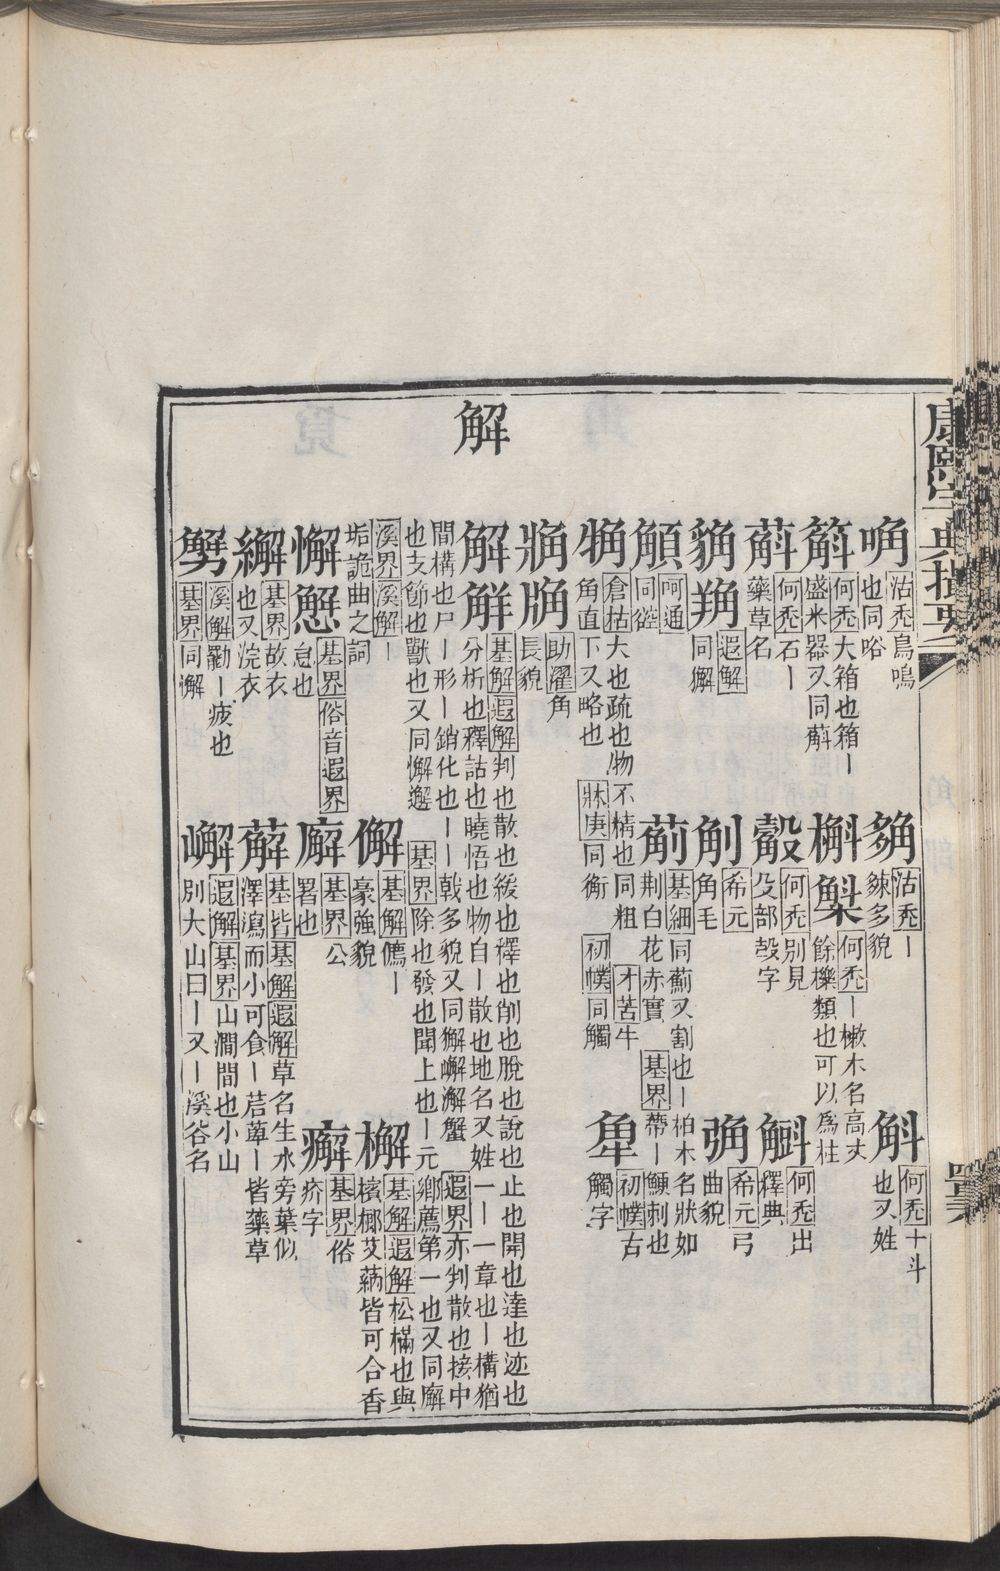 康熙字典撮要
解
唃 沽禿鳥鳴
也同咯
䚫 沽禿ー
䊎多貌
斛 何禿十斗
也又姓
䈰 何禿大箱也箱ー
盛米器又同䓇
槲 槲 何禿ー樕木名高丈
餘櫟類也可以爲柱
䓇 何禿石ー
藥草名
觳 何禿別見
殳部㱿字
何禿出
釋典
遐解
同獬
希元
角毛
希元弓
曲貌
䫦 呵通
同谾
基細同薊又割也ー柏木名狀如
荆 荆白花赤實 基界帶ー鯁刺也
倉枯大也疏也物不精也同粗 才苦牛
角直下又略也 牀庚同衡 初幞同觸
初幞古
觸字
助濯角
長貌
解 觧 基解遐解判也散也緩也釋也削也脫也說也止也開也達也迹也
分析也釋詁也曉悟也物自ー散也地名又姓ーーー章也ー構猶
間構也尸ー形ー銷化也ーー戟多貌又同獬嶰澥蟹 遐界亦判散也接中
也支節也獸也又同懈邂 基界除也發也聞上也ー元鄉薦第一也又同廨
溪界溪解ー
垢詭曲之詞
懈 懈 基界俗音遐界
怠也
㒠 基解傋ー
豪強貌
檞 基解遐解松樠也與
檳榔艾蒳皆可合香
廨 基界公
署也
癬 基界俗
疥字
繲 基界故衣
也又浣衣
薢 基皆基解遐解草名生水旁葉似
澤瀉而小可食ー萿萆ー皆藥草
溪解勸ー疲也
基界同懈
嶰 遐解基界山澗間也小山
別大山曰ー又ー溪谷名